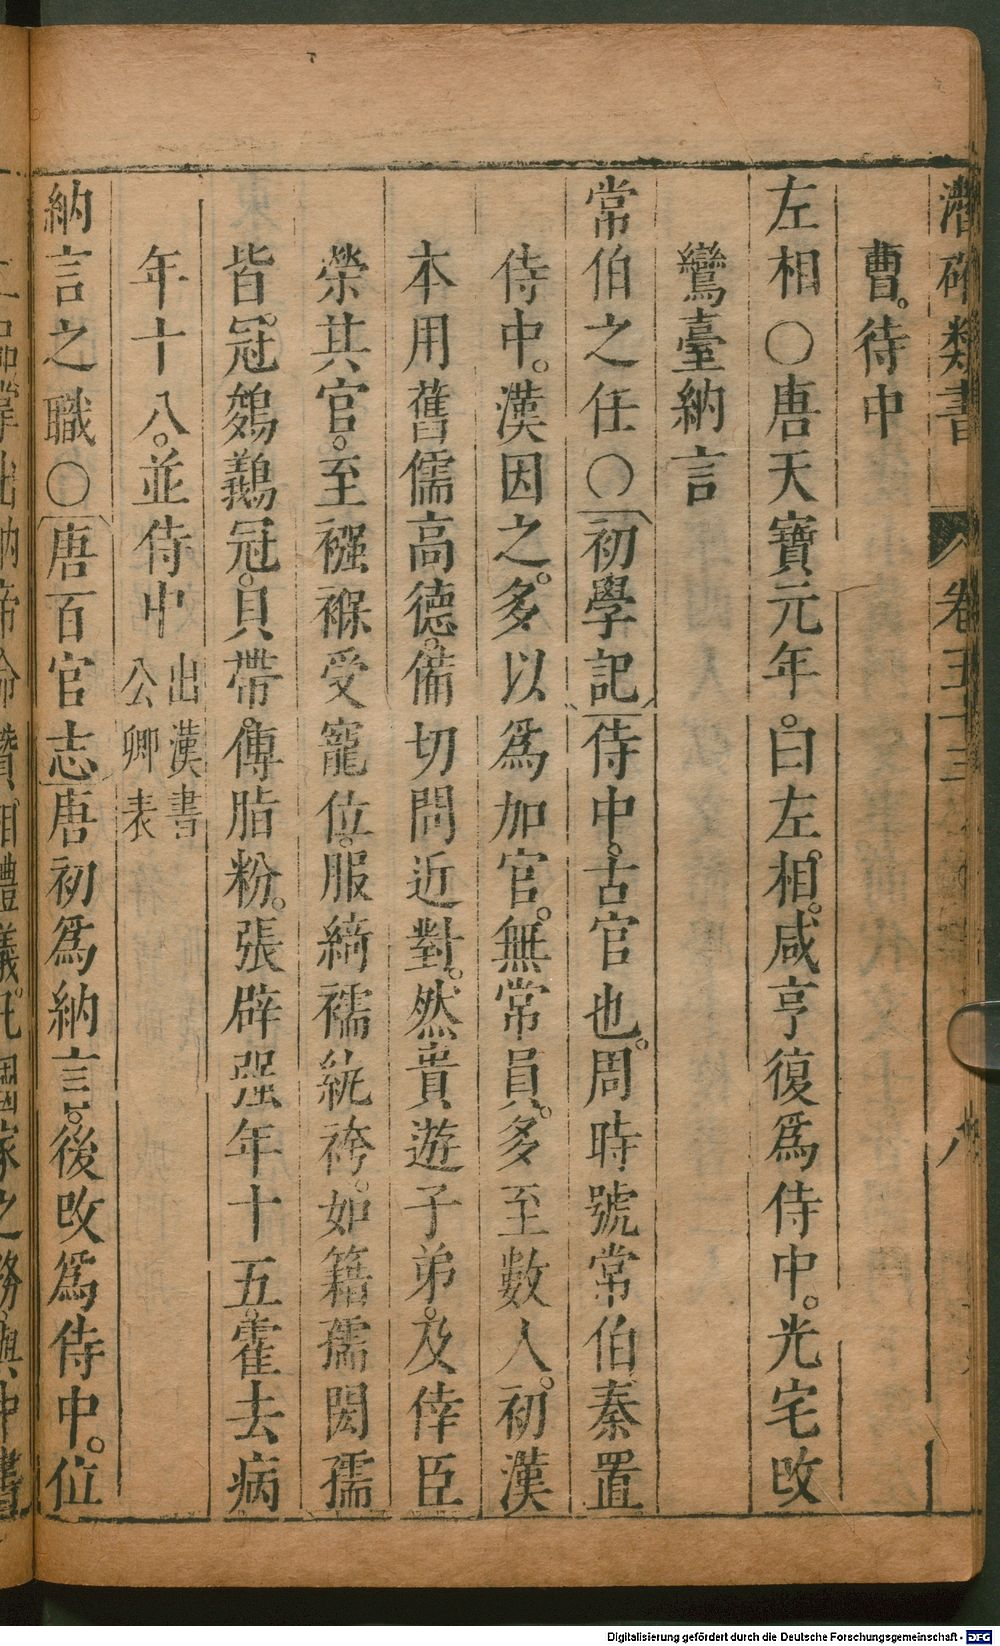 潛確類書 卷五十三 八
曹。待中
左相〇唐天寶元年。曰左相。咸亨復爲侍中。光宅改
鸞臺納言
常伯之任〇初學記侍中。古官也。周時號常伯秦置
侍中。漢因之。多以爲加官。無常員。多至數人。初漢
本用舊儒高德。備切問近對。然貴遊子弟。及倖臣
榮其官。至襁褓受寵位。服綺襦紈袴。如籍孺閎孺
皆。冠鵕鸃冠。貝帶。傳脂粉。張辟强年十五。霍去病
年十八。並侍中 出漢書公卿表
納言之職〇唐百官志唐初爲納言。後改爲侍中。位
納帝命 相禮儀。凡國家之務。與中書
Digitalisierung gefördert durch die Deutsche Forschungsgemeinschaft - DFG